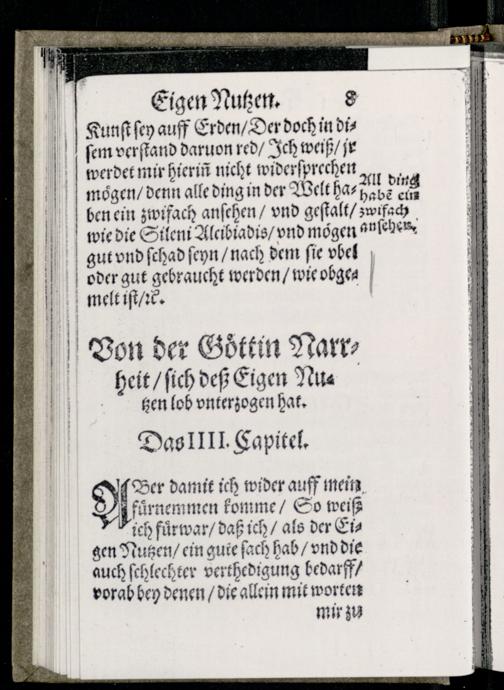 Eigen Nutzen. 8
Kunst sey auff Erden/Der doch in di⸗
sem verstand daruon red/ Ich weiß/ jr
werdet mir hieriñ nicht widersprechen
mögen/ denn alle ding in der Welt ha⸗
ben ein zwifach ansehen/ vnd gestalt/
wie die Sileni Alcibiadis/ vnd mögen
gut vnd schad seyn/ nach dem sie vbel
oder gut gebraucht werden/ wie obge⸗
melt ist/ꝛc.
All ding
habẽ ein
zwifach
ansehen.
Von der Göttin Narr⸗
heit/ sich deß Eigen Nu⸗
tzen lob vnterzogen hat.
Das IIII. Capitel.
ABer damit ich wider auff mein
fürnemmen komme/ So weiß
ich fürwar/ daß ich/ als der Ei⸗
gen Nutzen/ ein gute sach hab/ vnd die
auch schlechter verthedigung bedarff/
vorab bey denen/ die allein mit worten
mir zu